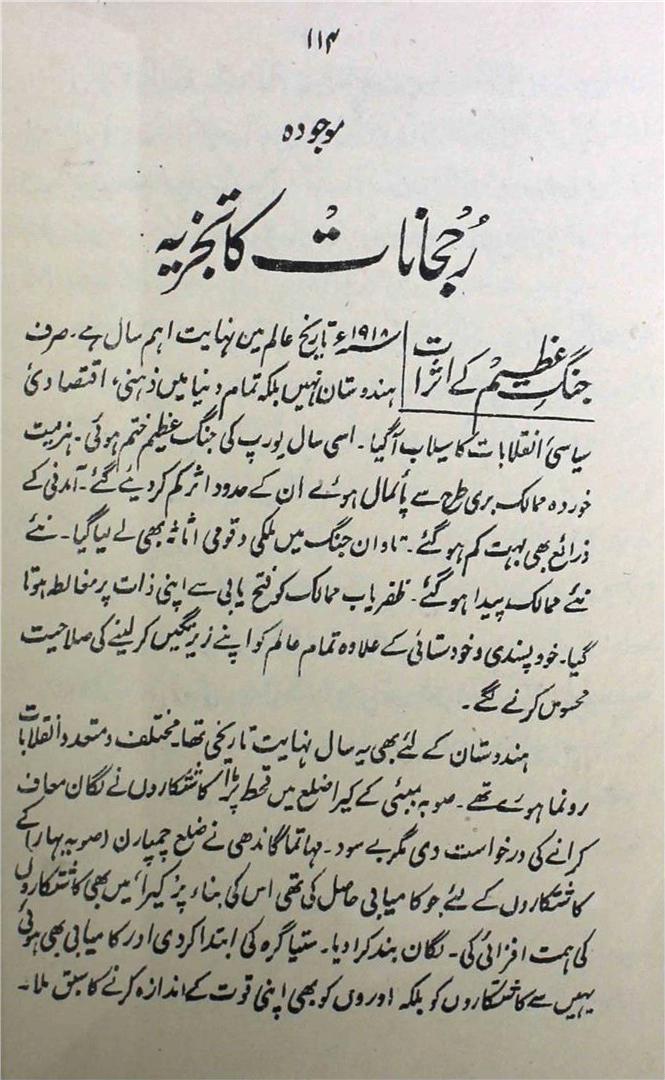 ۱۱۴
موجودہ
رُجحاناتْ کا تجزیہ
جنگِ عظیم کے اثرات
۱۹۱۸ء تاریخ عالم میں نہایت اہم سال ہے۔ صرف
ہندوستان نہیں بلکہ تمام دنیا میں ذہنی، اقتصادی
سیاسی انقلابات کا سیلاب آگیا۔ اسی سال یورپ کی جنگ عظیم ختم ہوئی۔ ہزیمت
خوردہ ممالک بری طرح سے پائمال ہوئے ان کے حدود اثر کم کردیئے گئے۔ آمدنی کے
ذرائع بھی بہت کم ہوگئے۔ تاوان جنگ میں ملکی و قومی اثاثہ بھی لے لیا گیا۔ نئے
نئے ممالک پیدا ہوگئے۔ ظفریاب ممالک کو فتح یابی سے اپنی ذات پر مغالطہ ہوتا
گیا۔ خود پسندی و خودستائی کے علاوہ تمام عالم کو اپنے زیر نگیں کرلینے کی صلاحیت
محسوس کرنے لگے۔
ہندوستان کے لئے بھی یہ سال نہایت تاریخی تھا۔ مختلف و متعدد انقلابات
رونما ہوئے تھے۔ صوبہ بمبئی کے کیرا ضلع میں قحط پڑا۔ کاشتکاروں نے لگان معاف
کرانے کی درخواست دی مگر بے سود۔ مہاتما گاندھی نے ضلع چمپارن (صوبہ بہار) کے
کاشتکاروں کے لئے جو کامیابی حاصل کی تھی اس کی بناء پر 'کیرا' میں بھی کاشتکاروں
کی ہمت افزائی کی۔ لگان بند کرادیا۔ ستیاگرہ کی ابتدا کردی اور کامیابی بھی ہوئی
یہیں سے کاشتکاروں کو بلکہ اوروں کو بھی اپنی قوت کے اندازہ کرنے کا سبق ملا۔